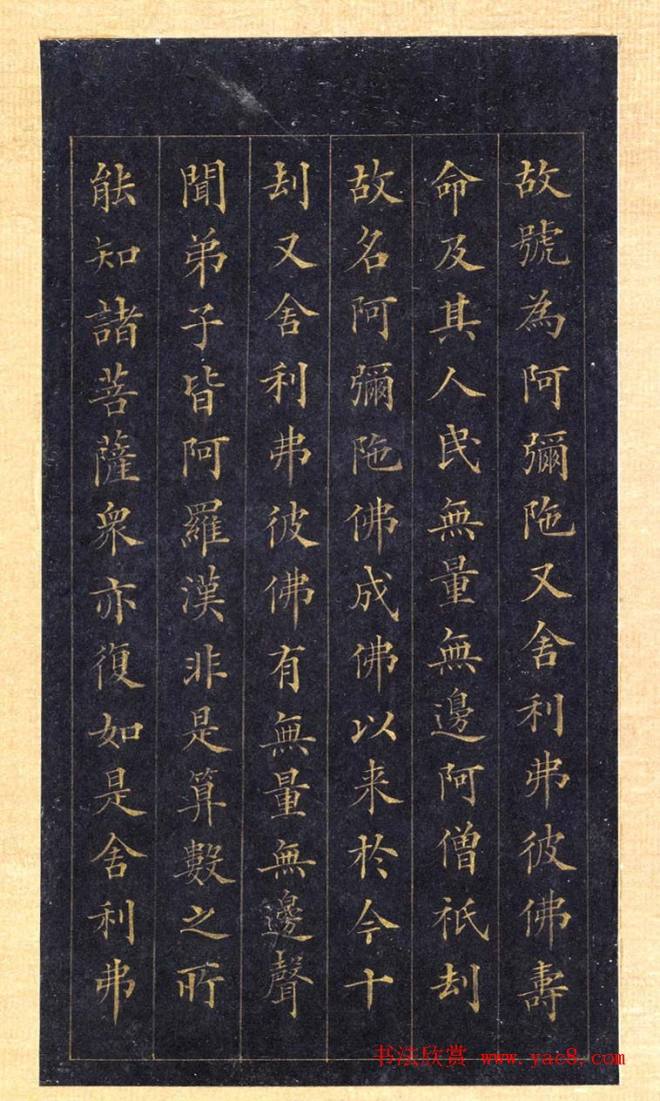 故號為阿彌陁又舍利弗彼佛壽
命及其人民無量無邊阿僧祇刦
故名阿彌陁佛成佛以来於今十
刦又舍利弗彼佛有無量無邊聲
聞弟子皆阿羅漢非是算數之所
能知諸菩薩衆亦復如是舍利弗
书法欣赏 www.yac8.com